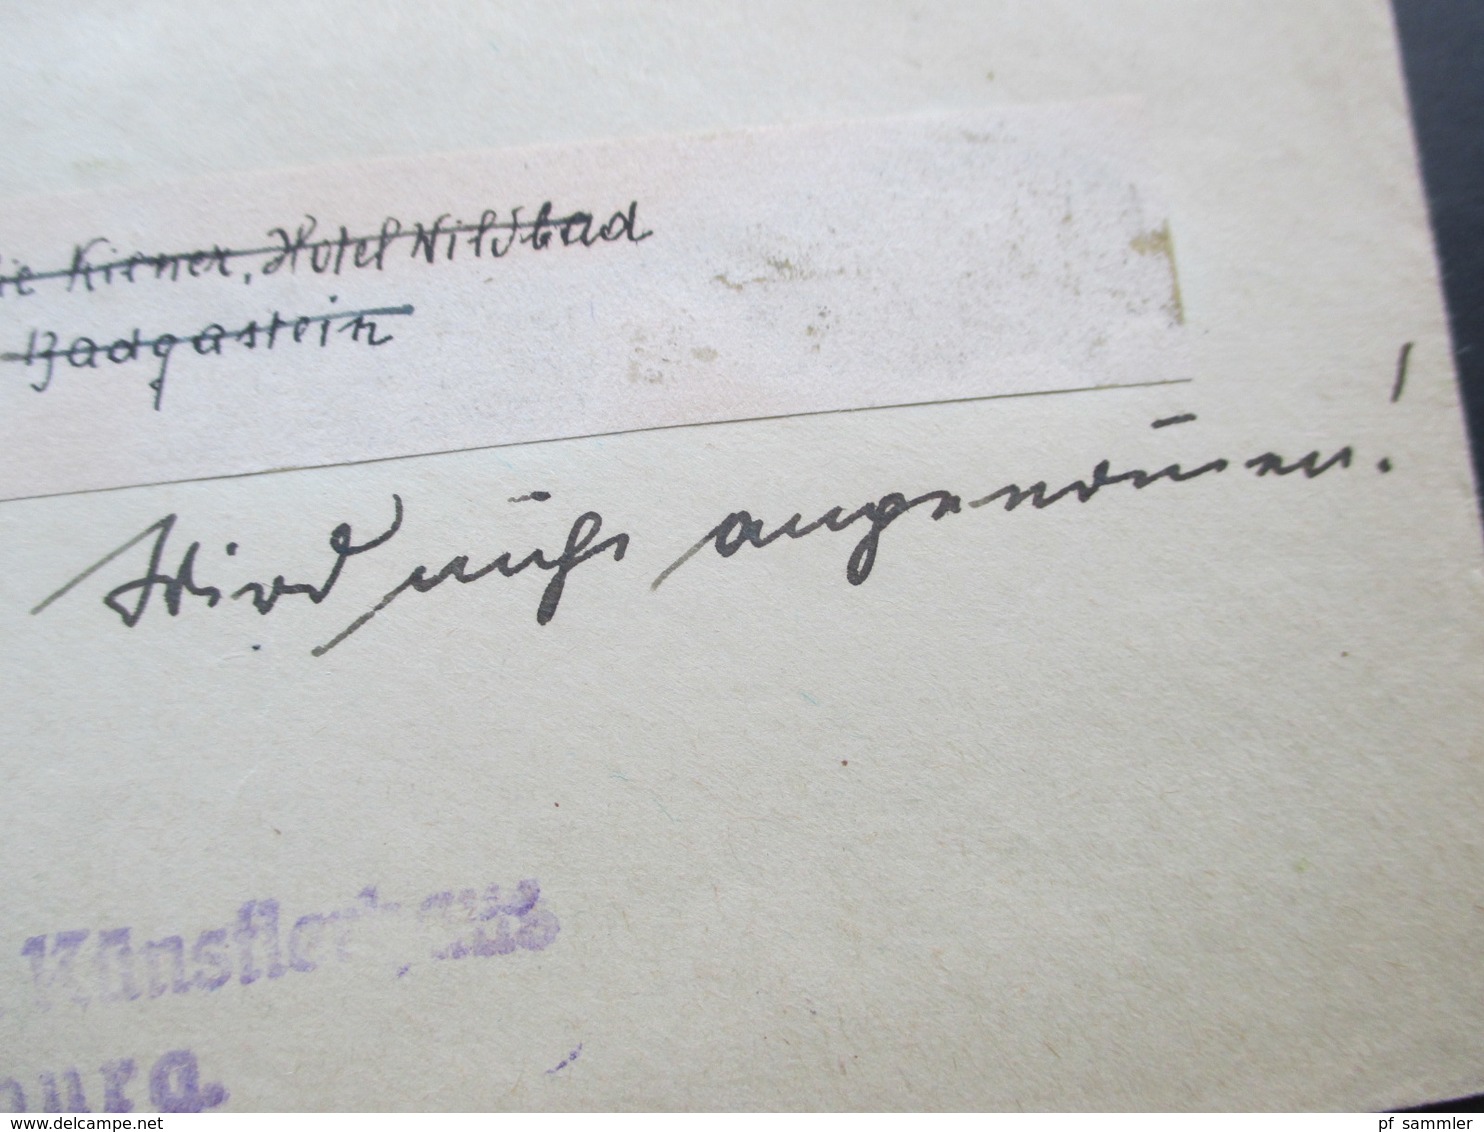 Kiener, Hotel Wildbad
Badgastein
Wird nicht angenom̅en!
Künstlerhaus
burg.
delcampe.net
pf_sammler